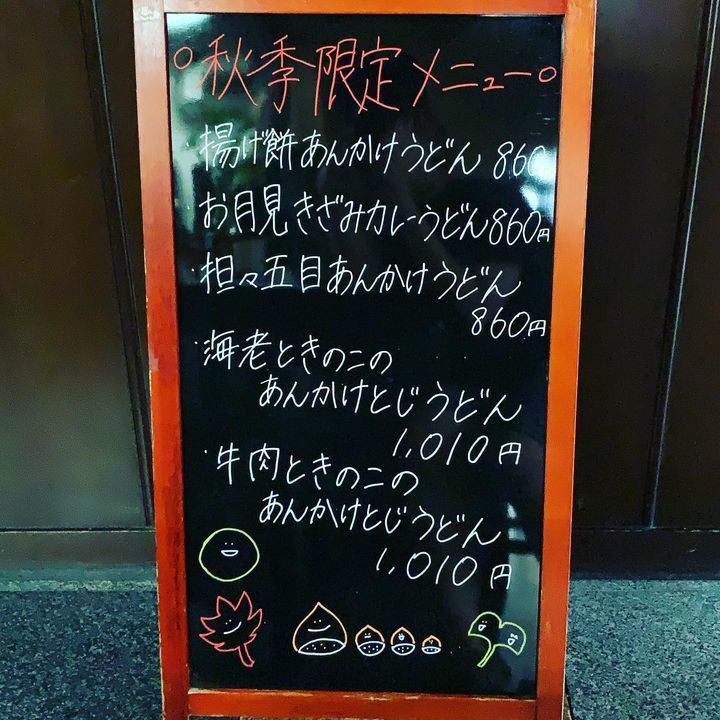 ○秋季限定メニュー○
・揚げ餅あんかけうどん 860
お月見きざみカレーうどん860円
・担々五目あんかけうどん
860円
・海老ときのこの
あんかけとじうどん
1,010円
・牛肉ときのこの
あんかけとじうどん
1,010円